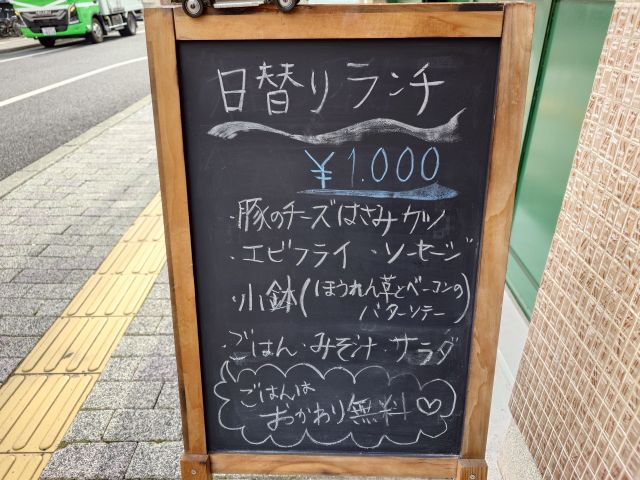 日替りランチ
¥1.000
・豚のチーズはさみカツ
・エビフライ ・ソーセージ
・小鉢(ほうれん草とベーコンの
バターソテー)
・ごはん・みそ汁・サラダ
ごはんは
おかわり無料♡